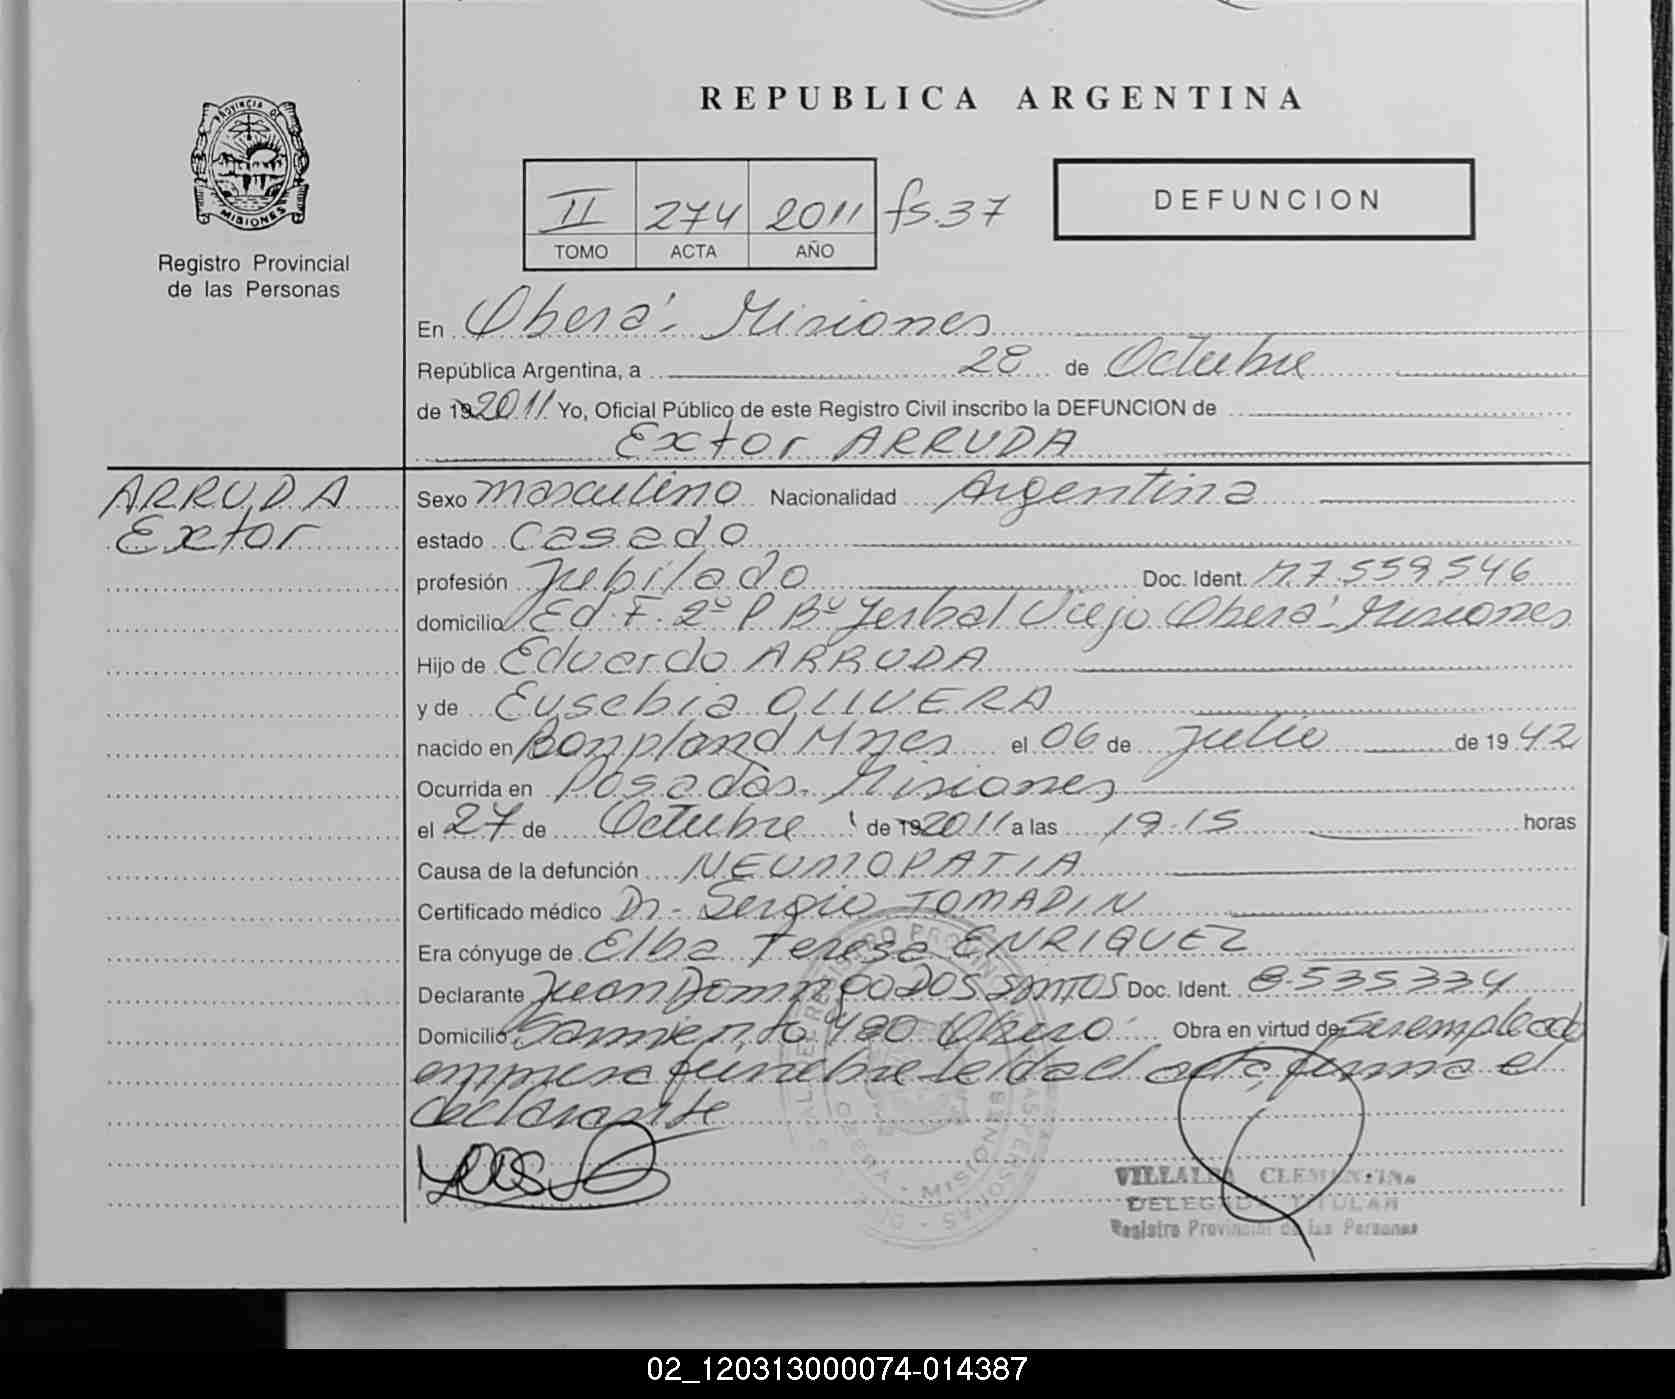 REPUBLICA ARGENTINA
PROVINCIA D
MISIONES
Registro Provincial
de las Personas
II 274 2011 fs. 37
TOMO ACTA AÑO
DEFUNCION
En Oberá - Misiones
República Argentina, a 28 de Octubre
de 19 2011 Yo, Oficial Público de este Registro Civil inscribo la DEFUNCION de
Extor ARRUDA
ARRUDA
Extor
Sexo masculino Nacionalidad Argentina
estado Casado
profesión Jubilado Doc. Ident. M7.559.546
domicilio Ed. F. 2º P Bº Yerbal Viejo Oberá - Misiones
Hijo de Eduardo ARRUDA
y de Eusebia OLIVERA
nacido en Bonpland Mnes el 06 de julio de 1942
Ocurrida en Posadas - Misiones
el 27 de Octubre de 19 2011 a las 19.15 horas
Causa de la defunción NEUMOPATIA
Certificado médico Dr. Sergio TOMADIN
Era cónyuge de Elba Teresa ENRIQUEZ
Declarante Juan Domingo DOS SANTOS Doc. Ident. 8.535.334
Domicilio Sarmiento 480 Oberá Obra en virtud de ser empleado
empresa funebre leida el acta, firma el
declarante
VILLALBA CLEMENTINA
DELEGADA TITULAR
Registro Provincial de las Personas
02_120313000074-014387